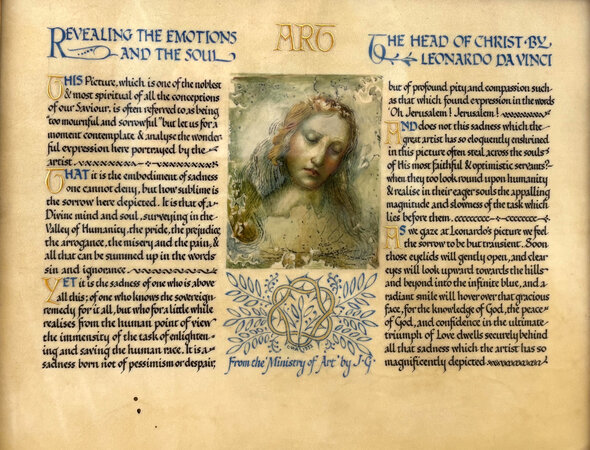 REVEALING THE EMOTIONS
AND THE SOUL
ART
THE HEAD OF CHRIST·BY
LEONARDO DA VINCI
THIS Picture, which is one of the noblest
& most spiritual of all the conceptions
of our Saviour, is often referred to as being
"too mournful and sorrowful" but let us for a
moment contemplate & analyse the wonder-
ful expression here portrayed by the
artist.
THAT it is the embodiment of sadness
one cannot deny, but how sublime is
the sorrow here depicted. It is that of a
Divine mind and soul, surveying in the
Valley of Humanity, the pride, the prejudice,
the arrogance, the misery and the pain, &
all that can be summed up in the words
sin and ignorance
YET it is the sadness of one who is above
all this; of one who knows the sovereign
remedy for it all, but who for a little while
realises from the human point of view
the immensity of the task of enlighten-
ing and saving the human race. It is a
sadness born not of pessimism or despair,
From the "Ministry of Art" by J·G·
but of profound pity and compassion such
as that which found expression in the words
"Oh, Jerusalem! Jerusalem!
AND does not this sadness which the
great artist has so eloquently enshrined
in this picture often steal across the souls
of His most faithful & optimistic servants?
when they too look round upon humanity
& realise in their eager souls the appalling
magnitude and slowness of the task which
lies before them.
AS we gaze at Leonardo's picture we feel
the sorrow to be but transient. Soon
those eyelids will gently open, and clear
eyes will look upward towards the hills
and beyond into the infinite blue, and a
radiant smile will hover over that gracious
face, for the knowledge of God, the peace
of God, and confidence in the ultimate
triumph of Love dwells securely behind
all that sadness which the artist has so
magnificently depicted